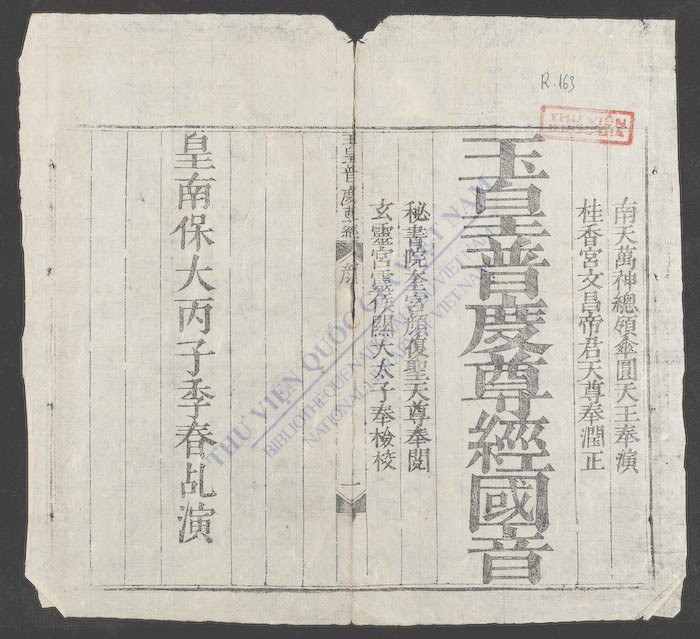 R.163
THƯ VIỆN
QUỐC GIA
南天萬神總領傘圓天王奉演
桂香宮文昌帝君天尊奉潤正
玉皇普度尊經國音
秘書院奎宮顏復聖天尊奉閱
玄靈宮靈侯關大太子奉檢校
玉皇普度尊經
一
皇南保大丙子季春乩演
THƯ VIỆN QUỐC GIA VIỆT NAM
BIBLIOTHEQUE NATIONALE DU VIETNAM
NATIONAL LIBRARY OF VIETNAM